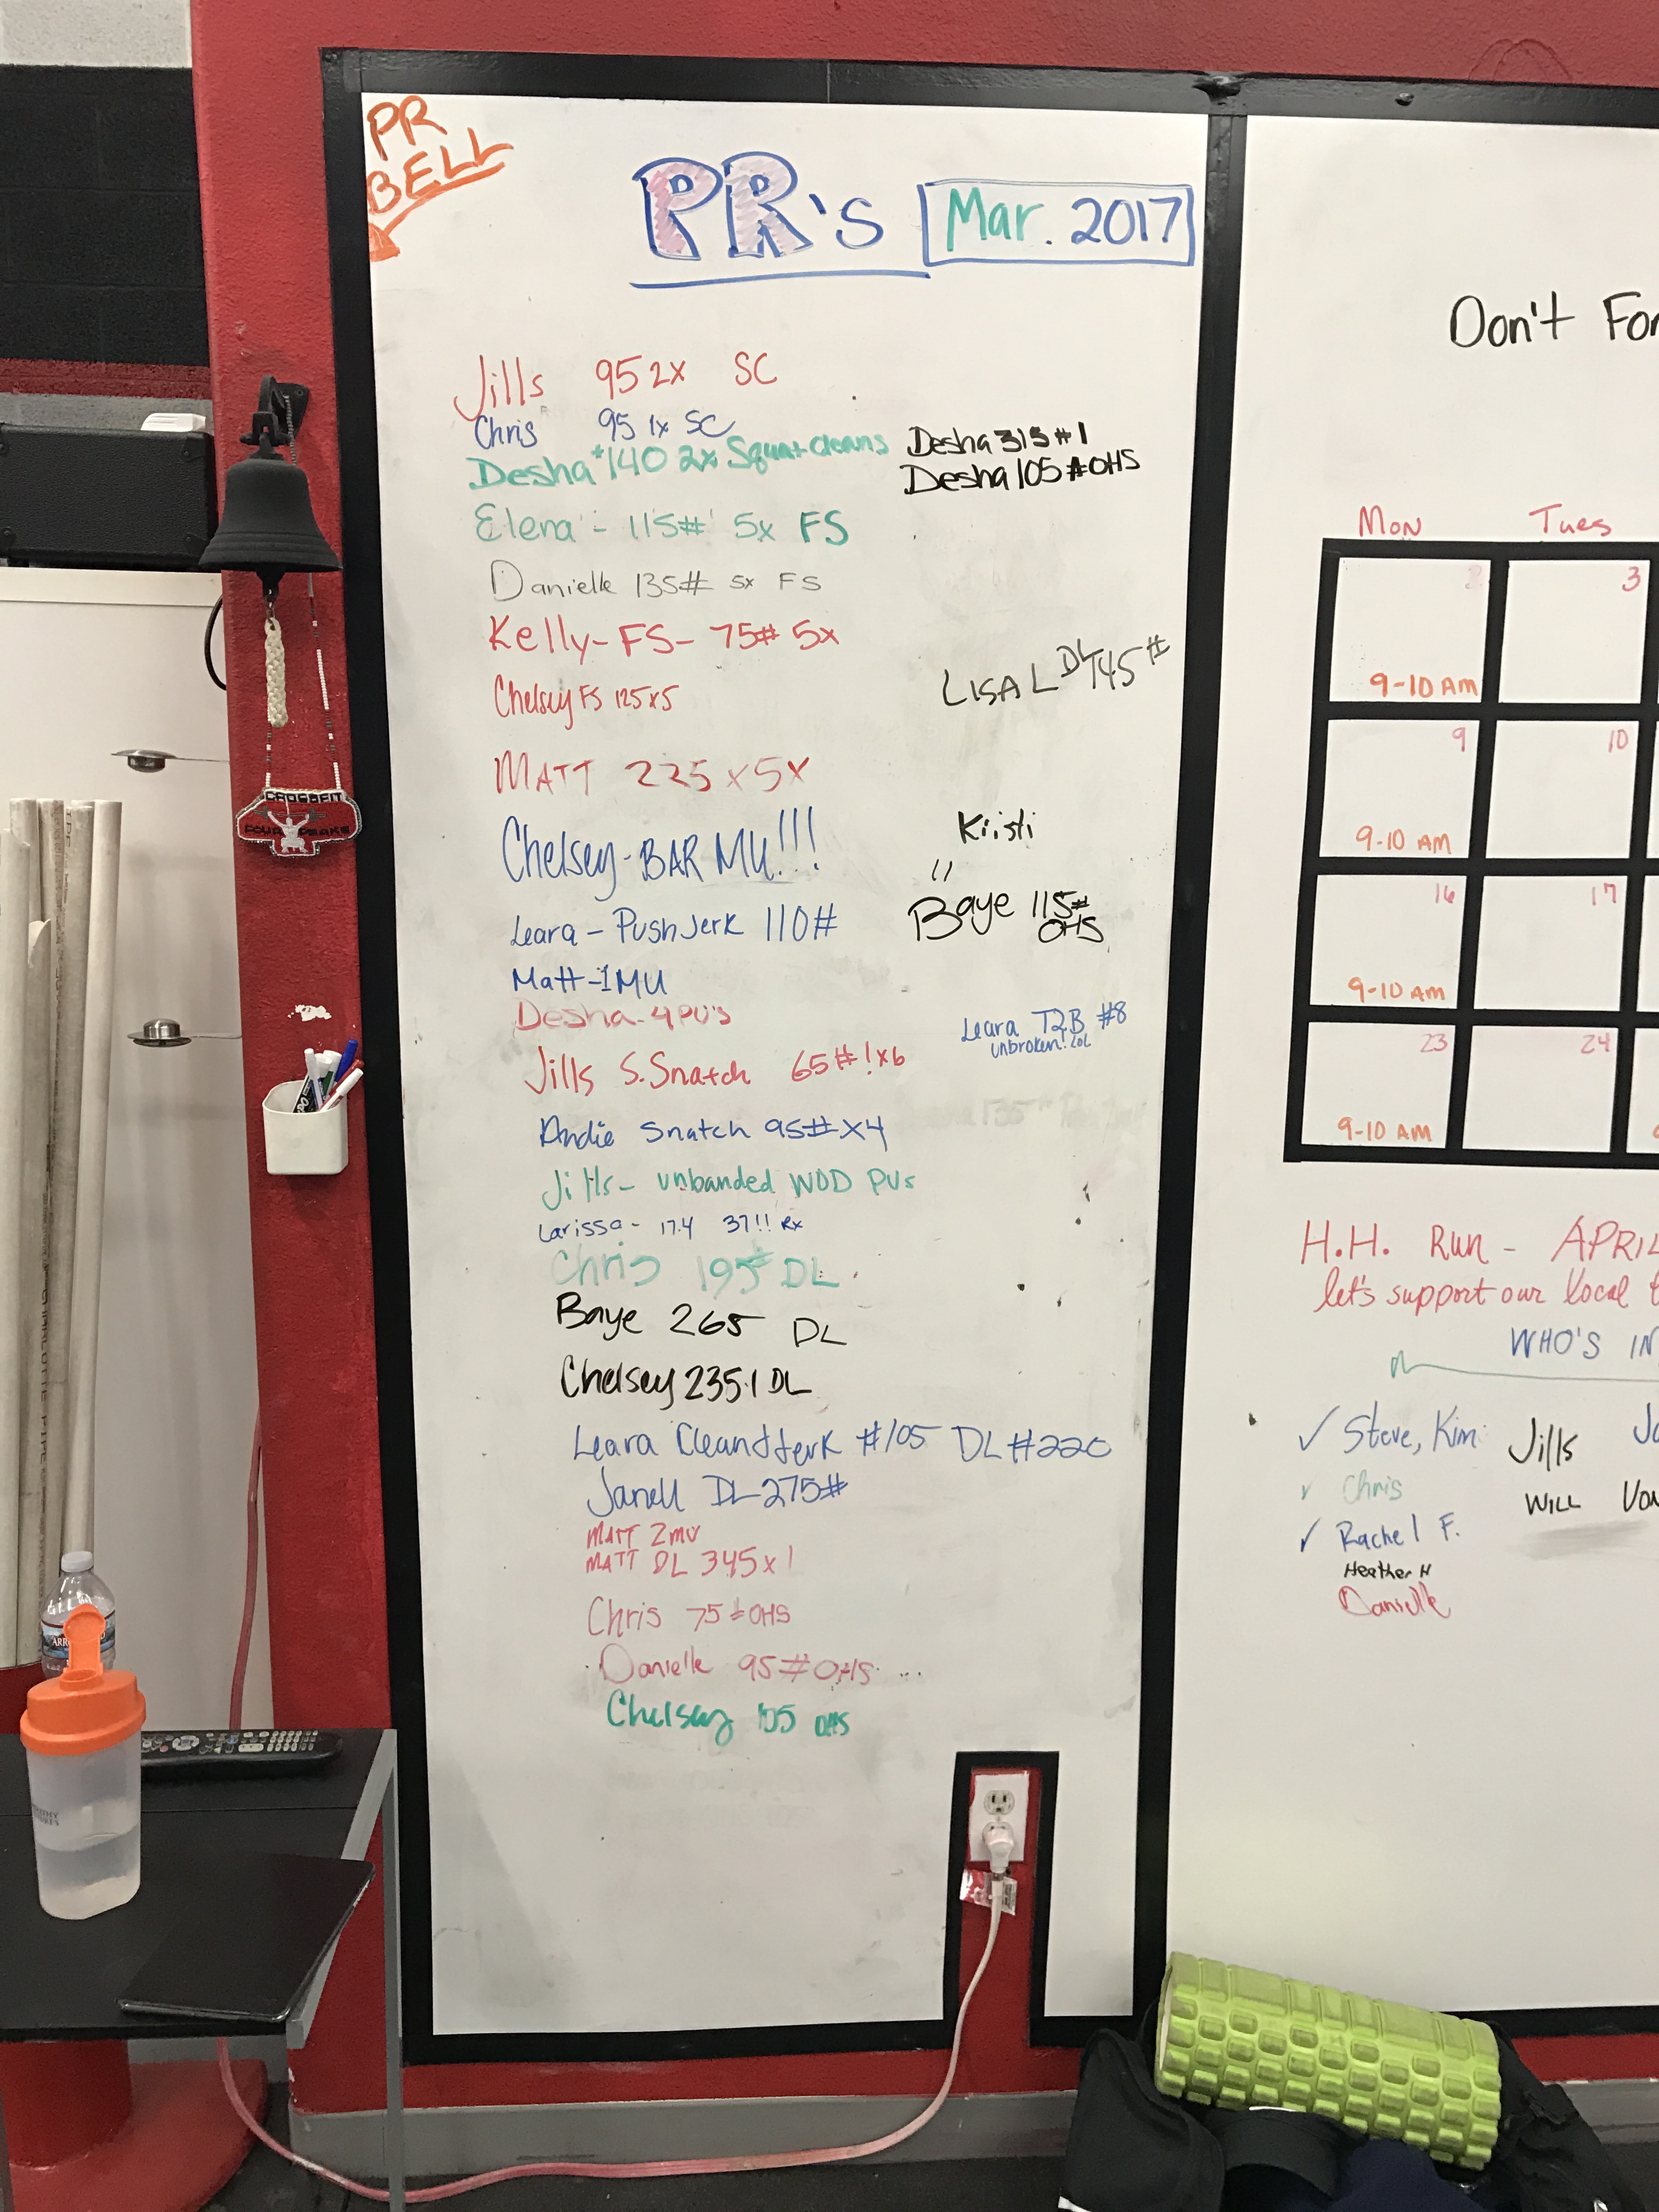 PR
BELL
PR's Mar. 2017
Jills 95 2x SC
Chris 95 1x SC
Desha #140 2x Squat cleans
Elena - 115# 5x FS
Danielle 135# 5x FS
Kelly - FS - 75# 5x
Chelsey FS 125x5
MATT 225 x 5x
Chelsey - BAR MU!!!
Leara - Push Jerk 110#
Matt - 1 MU
Desha - 4 PU's
Jills S. Snatch 65#! x6
Andie Snatch 95# x4
Jills - unbanded WOD PUs
Larissa - 17.4 37!! Rx
Chris 195# DL
Baye 265 DL
Chelsey 235 · 1 DL
Leara Clean & Jerk #105 DL #220
Janell DL 275#
MATT 2 MU
MATT DL 345 x 1
Chris 75# OHS
Danielle 95# OHS ...
Chelsey 105 OHS
Desha 315 #1
Desha 105 # OHS
LISA L DL 145#
Kristi
"
Baye 115#
OHS
Leara T2B #8
unbroken! LOL
Don't
Mon Tues
3
9-10 AM
9 10
9-10 AM
16 17
9-10 AM
23 24
9-10 AM
H.H. Run - APRIL
let's support our local
WHO'S IN
✓ Steve, Kim Jills
✓ Chris WILL
✓ Rachel F.
Heather H
Danielle
CROSSFIT
FOUR PEAKS